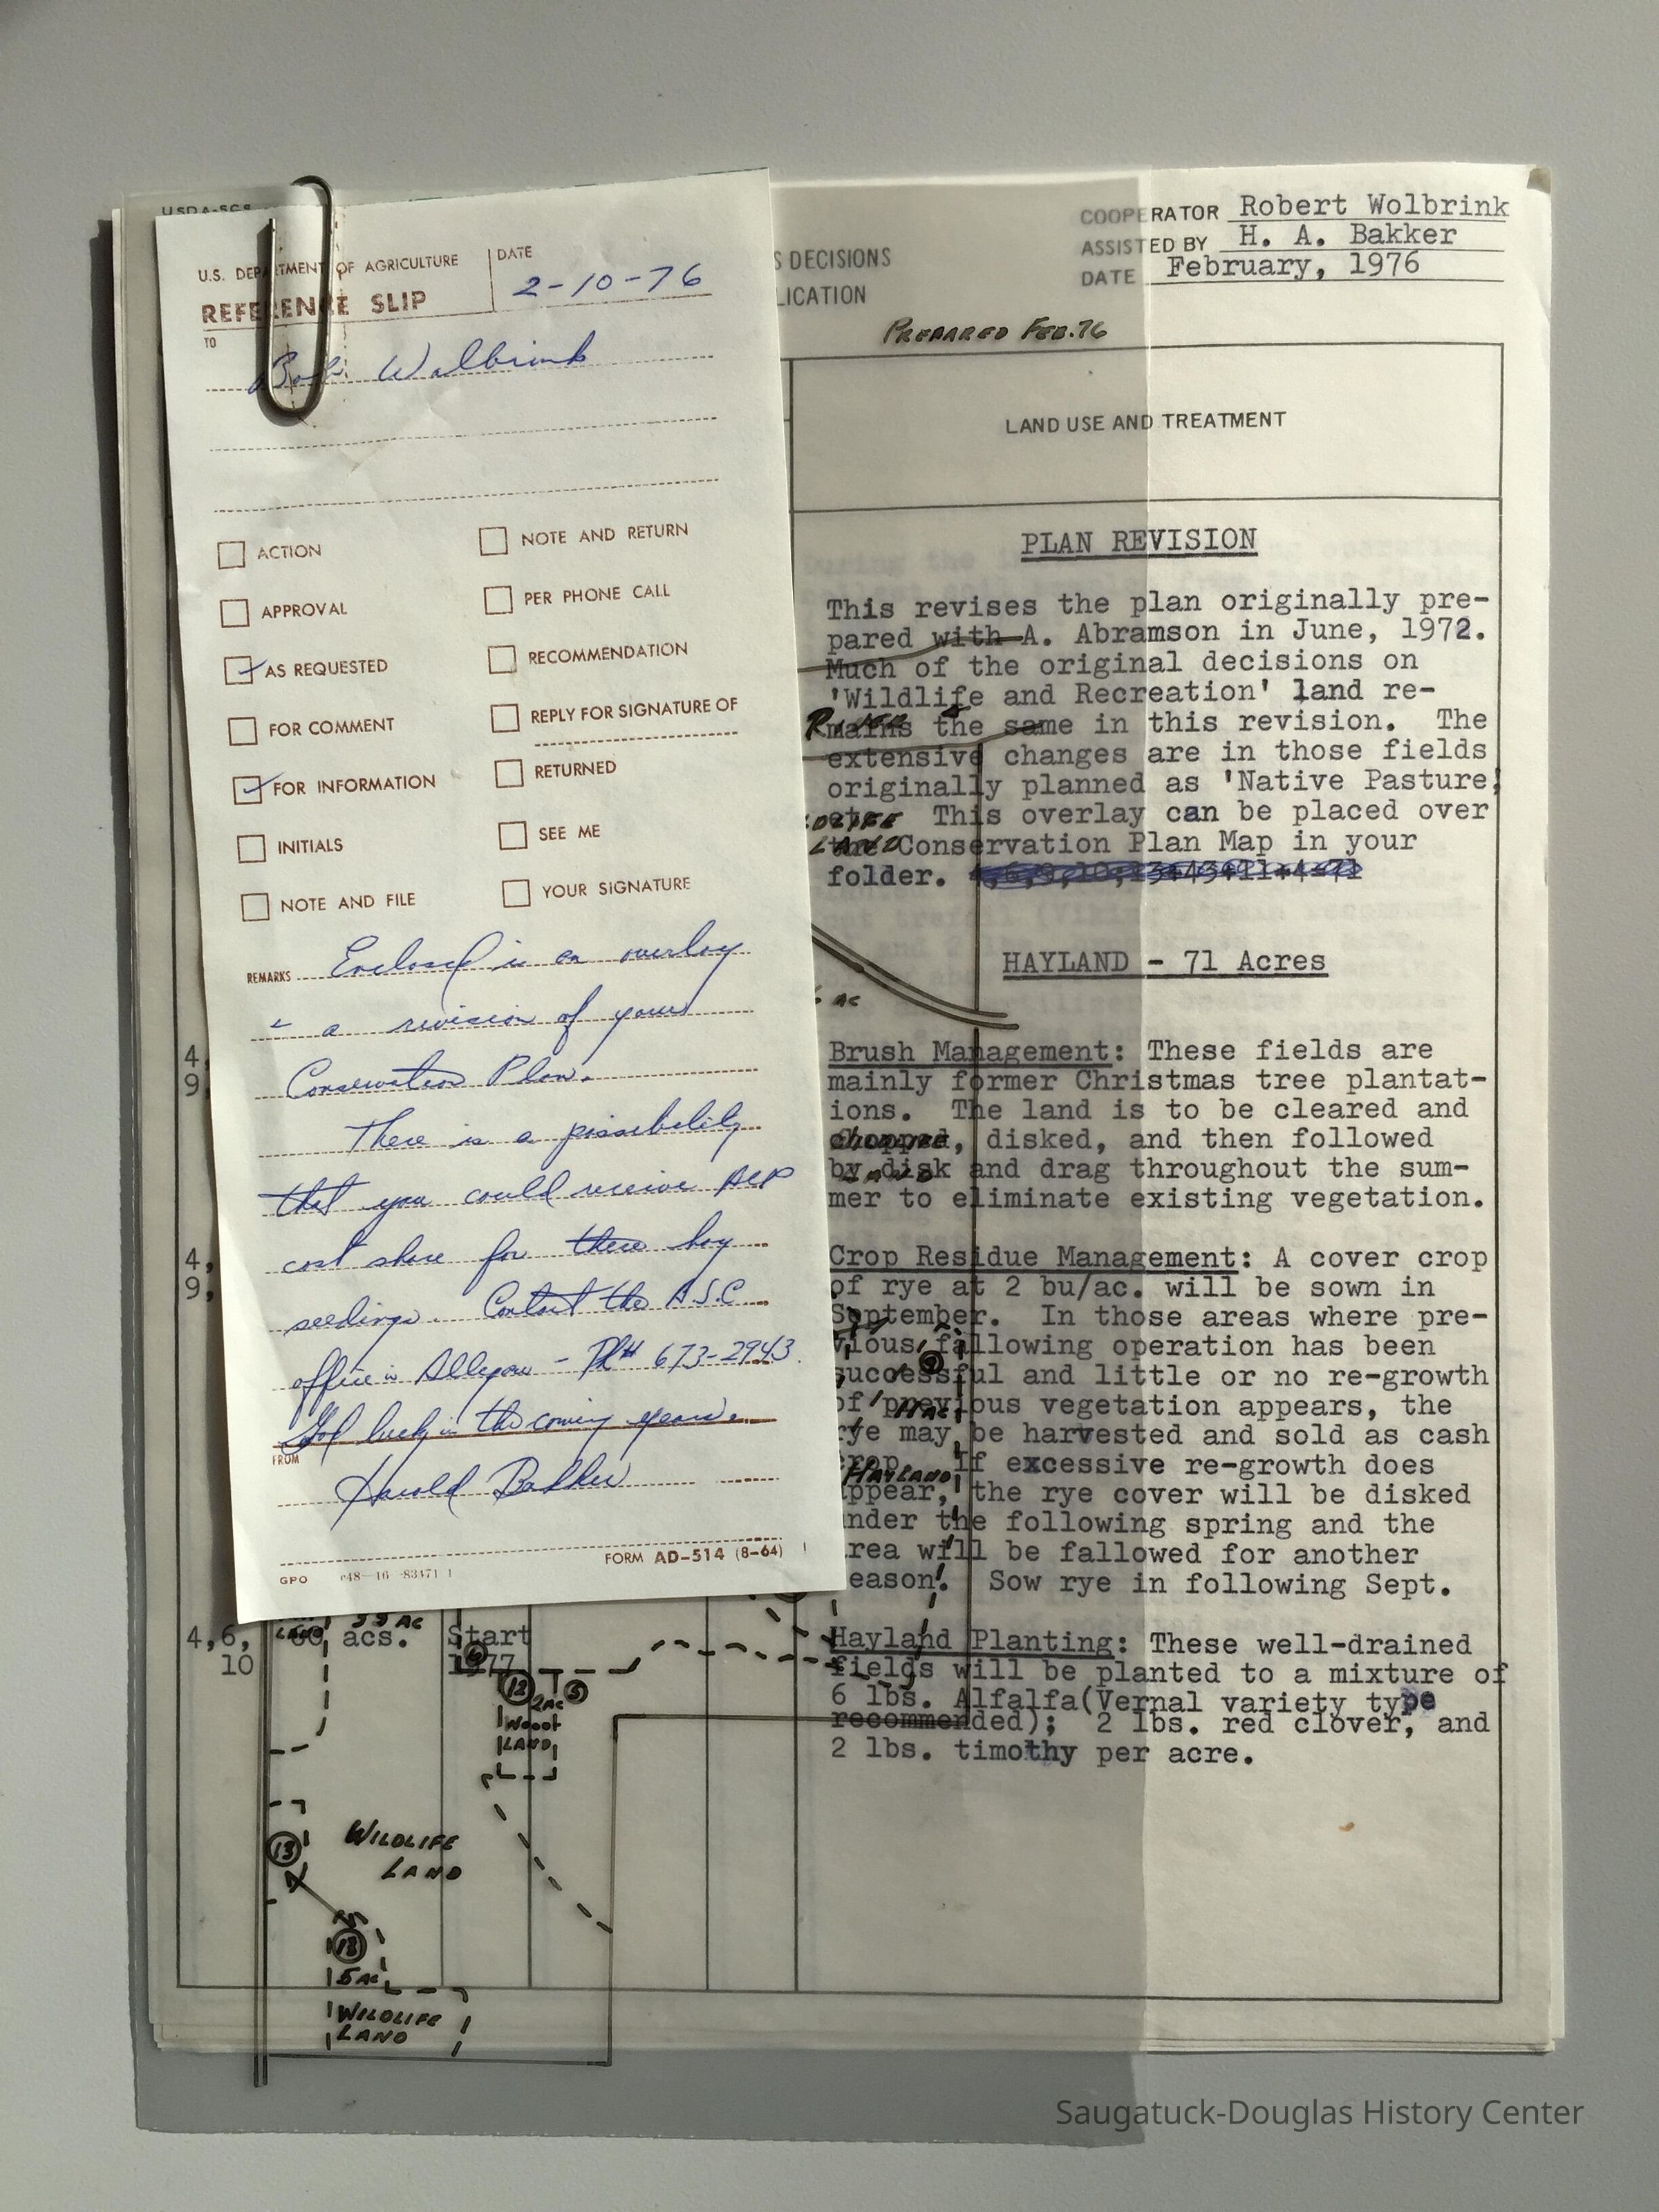 USDA-SCS
U.S. DEPARTMENT OF AGRICULTURE
REFERENCE SLIP
DATE
2-10-76
TO
Bob Wolbrink
ACTION
NOTE AND RETURN
APPROVAL
PER PHONE CALL
AS REQUESTED
RECOMMENDATION
FOR COMMENT
REPLY FOR SIGNATURE OF
FOR INFORMATION
RETURNED
INITIALS
SEE ME
NOTE AND FILE
YOUR SIGNATURE
REMARKS
Enclosed is an overlay
& a revision of your
Conservation Plan.
There is a possibility
that you could receive ACP
cost share for these hay
seedings. Contact the A.S.C.
office in Allegan - Ph# 673-2943.
Good luck in the coming years.
FROM
Harold Bakker
FORM AD-514 (8-64)
GPO
COOPERATOR Robert Wolbrink
ASSISTED BY H. A. Bakker
DATE February, 1976
S DECISIONS
LICATION
PREPARED FEB. 76
LAND USE AND TREATMENT
PLAN REVISION
This revises the plan originally pre-
pared with A. Abramson in June, 1972.
Much of the original decisions on
'Wildlife and Recreation' land re-
mains the same in this revision. The
extensive changes are in those fields
originally planned as 'Native Pasture,'
etc. This overlay can be placed over
the Conservation Plan Map in your
folder.
HAYLAND - 71 Acres
4,
9,
Brush Management: These fields are
mainly former Christmas tree plantat-
ions. The land is to be cleared and
chopped, disked, and then followed
by disk and drag throughout the sum-
mer to eliminate existing vegetation.
4,
9,
Crop Residue Management: A cover crop
of rye at 2 bu/ac. will be sown in
September. In those areas where pre-
vious fallowing operation has been
successful and little or no re-growth
of previous vegetation appears, the
rye may be harvested and sold as cash
crop. If excessive re-growth does
appear, the rye cover will be disked
under the following spring and the
area will be fallowed for another
season. Sow rye in following Sept.
4,6,
10
60 acs.
Start
1977
Hayland Planting: These well-drained
fields will be planted to a mixture of
6 lbs. Alfalfa(Vernal variety type
recommended); 2 lbs. red clover, and
2 lbs. timothy per acre.
RIVER
LAND
AC
HAYLAND
LAND
AC
12
2AC
5
LAND
13
WILDLIFE
LAND
13
5 AC
WILDLIFE
LAND
Saugatuck-Douglas History Center